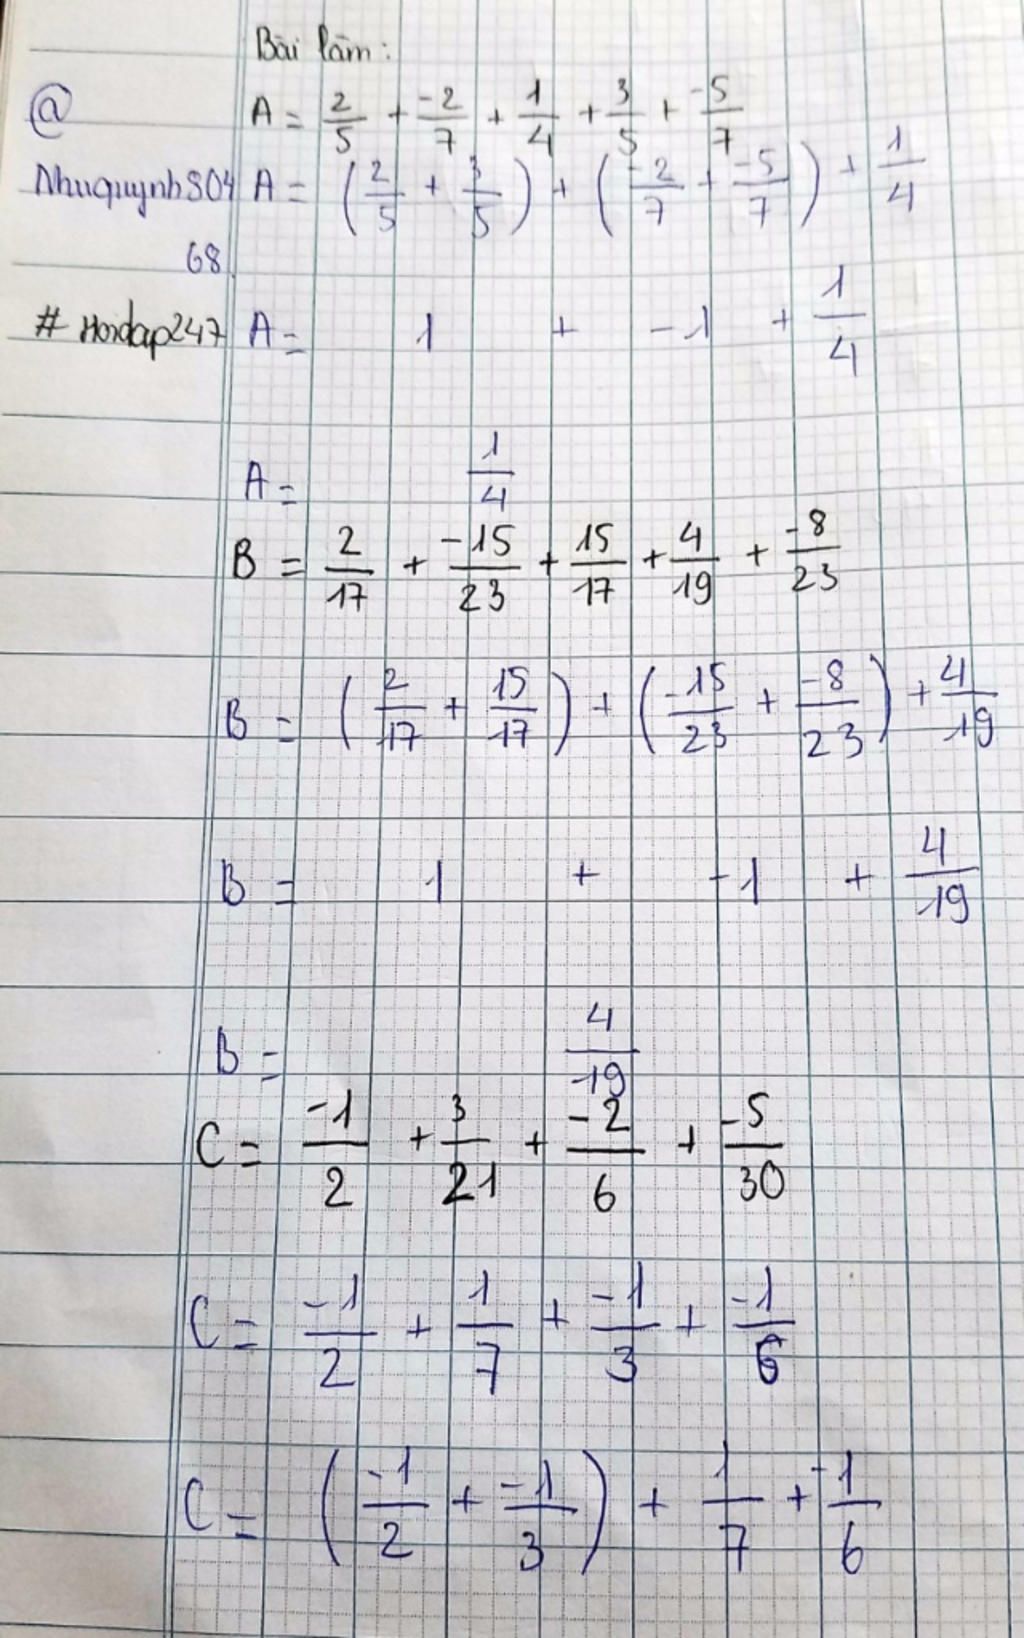 Bài làm:
@
Nhuquynh804
68
# Hoidap247
A = 2/5 + -2/7 + 1/4 + 3/5 + -5/7
A = (2/5 + 3/5) + (-2/7 + -5/7) + 1/4
A = 1 + -1 + 1/4
A = 1/4
B = 2/17 + -15/23 + 15/17 + 4/19 + -8/23
B = (2/17 + 15/17) + (-15/23 + -8/23) + 4/19
B = 1 + -1 + 4/19
B = 4/19
C = -1/2 + 3/21 + -2/6 + -5/30
C = -1/2 + 1/7 + -1/3 + -1/6
C = (-1/2 + -1/3) + 1/7 + -1/6